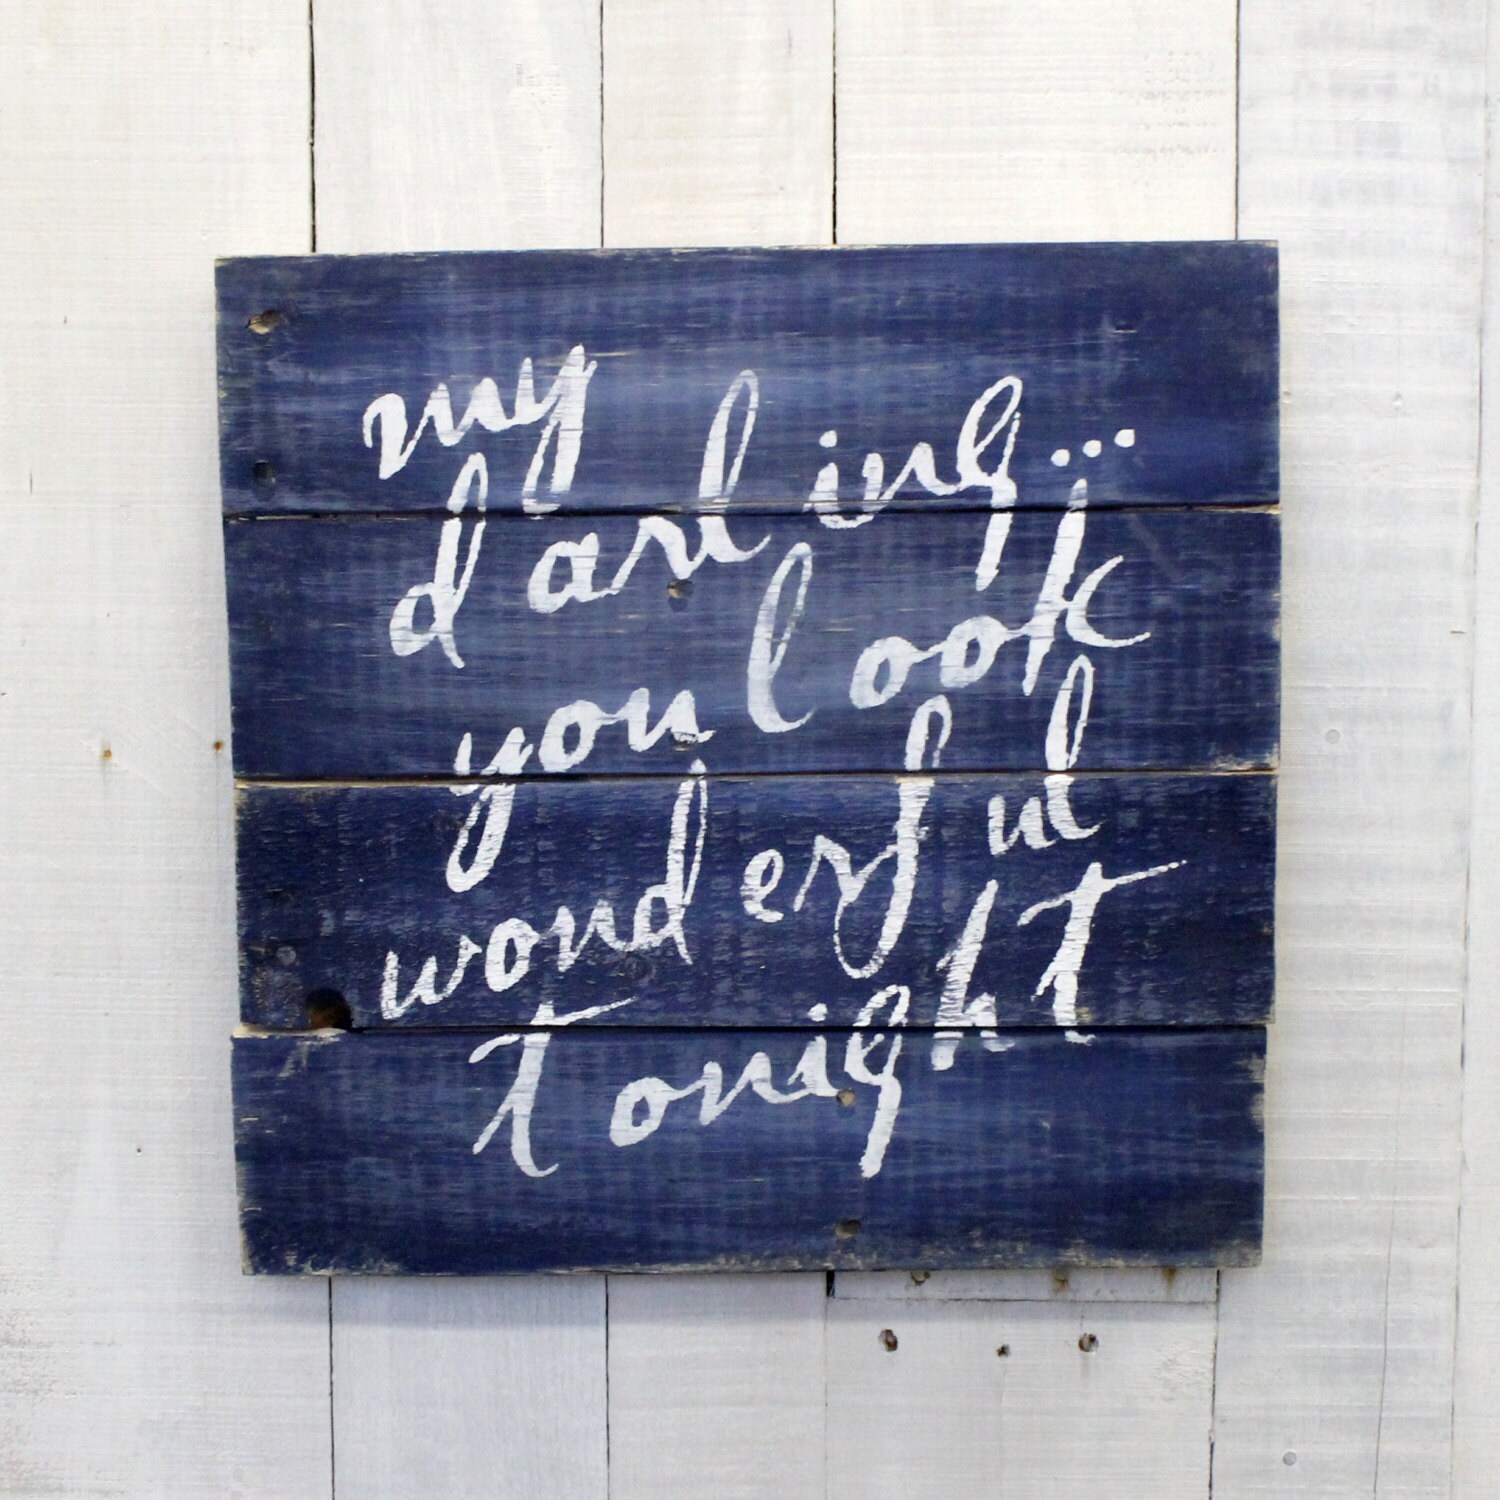 my
darling...
you look
wonderful
tonight